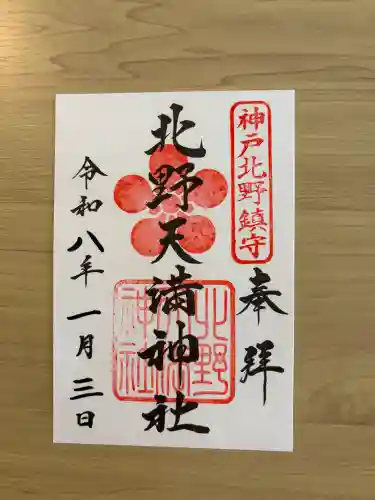 神戸北野鎮守
奉拝
北野天満神社
北野
神社
令和八年一月三日